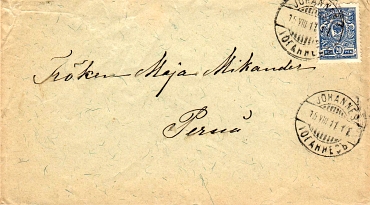 JOHANNES
15.VIII.11
ІОГАННЕСЪ
Fröken Maja Mikander
Pernå
JOHANNES
15.VIII.11
ІОГАННЕСЪ